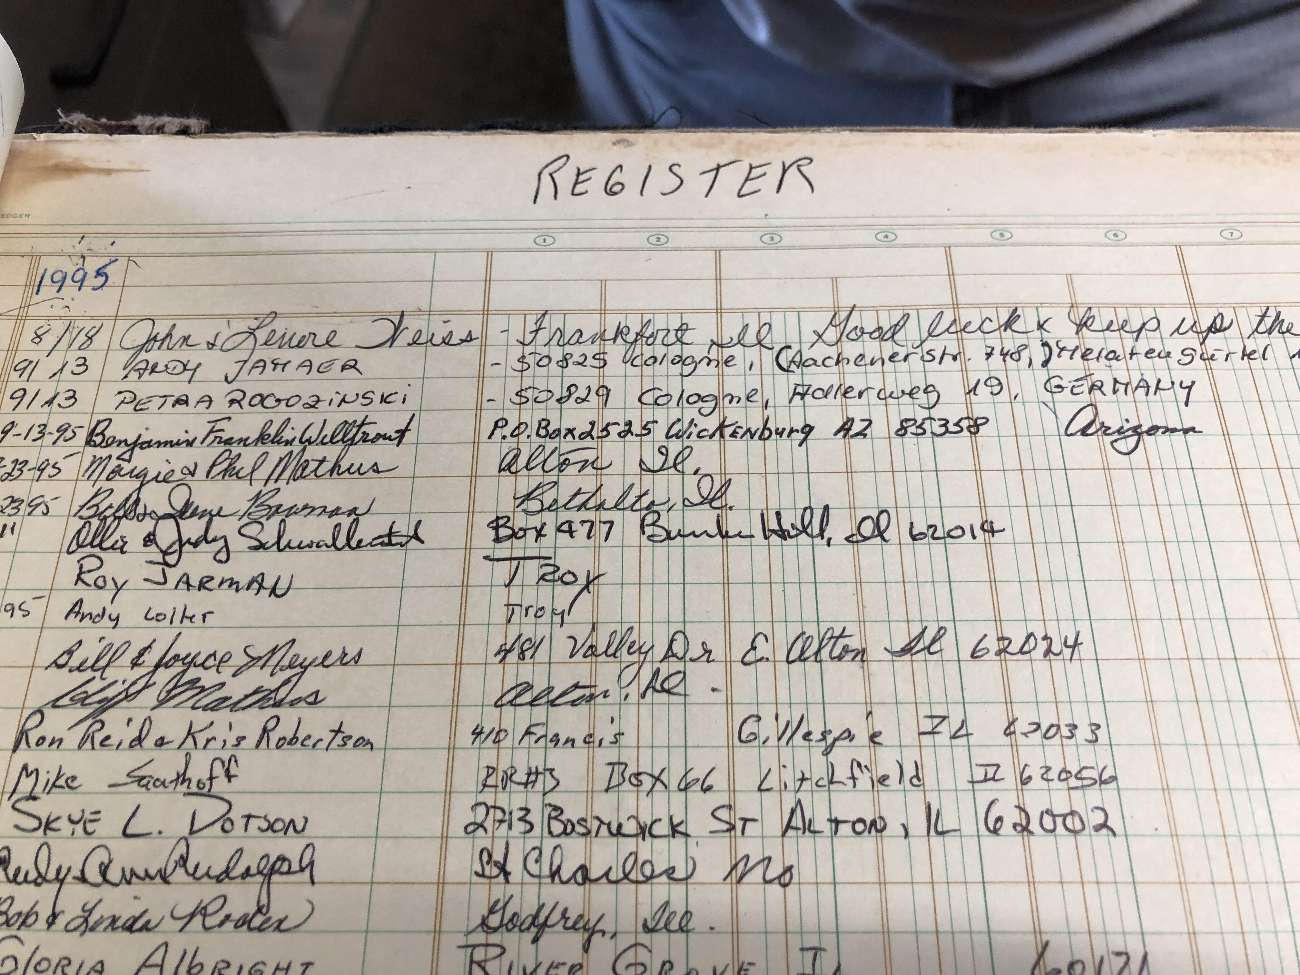 REGISTER
1 2 3 4 5 6 7
1995
8/18 John & Lenore Weiss - Frankfort Ill Good luck & keep up the
9/13 ANDY JAMAER - 50825 Cologne, (Aachenerstr. 748,) Melatengürtel
9/13 PETRA ROGOZINSKI - 50829 Cologne, Adlerweg 19, GERMANY
9-13-95 Benjamin Franklin Willtrout P.O. Box 2525 Wickenburg AZ 85358 Arizona
23-95 Margie & Phil Mathus Alton Il.
2395 Bill & June Bowman Bethalto, Il.
" Ollie & Judy Schwallenstek Box 477 Bunker Hill, Il 62014
Roy JARMAN Troy
95 Andy Troy
Bill & Joyce Meyers 481 Valley Dr E. Alton Il 62024
Mathus Alton, Il.
Ron Reid & Kris Robertson 410 Francis Gillespie IL 62033
Mike Saathoff RR#3 Box 66 Litchfield Il 62056
SKYE L. DOTSON 2713 BOSTWICK ST ALTON, IL 62002
Rudy Ann Rudolph St Charles Mo
Bob & Linda Roden Godfrey, Ill.
GLORIA AlBRIGHT RIVER GROVE IL 60171